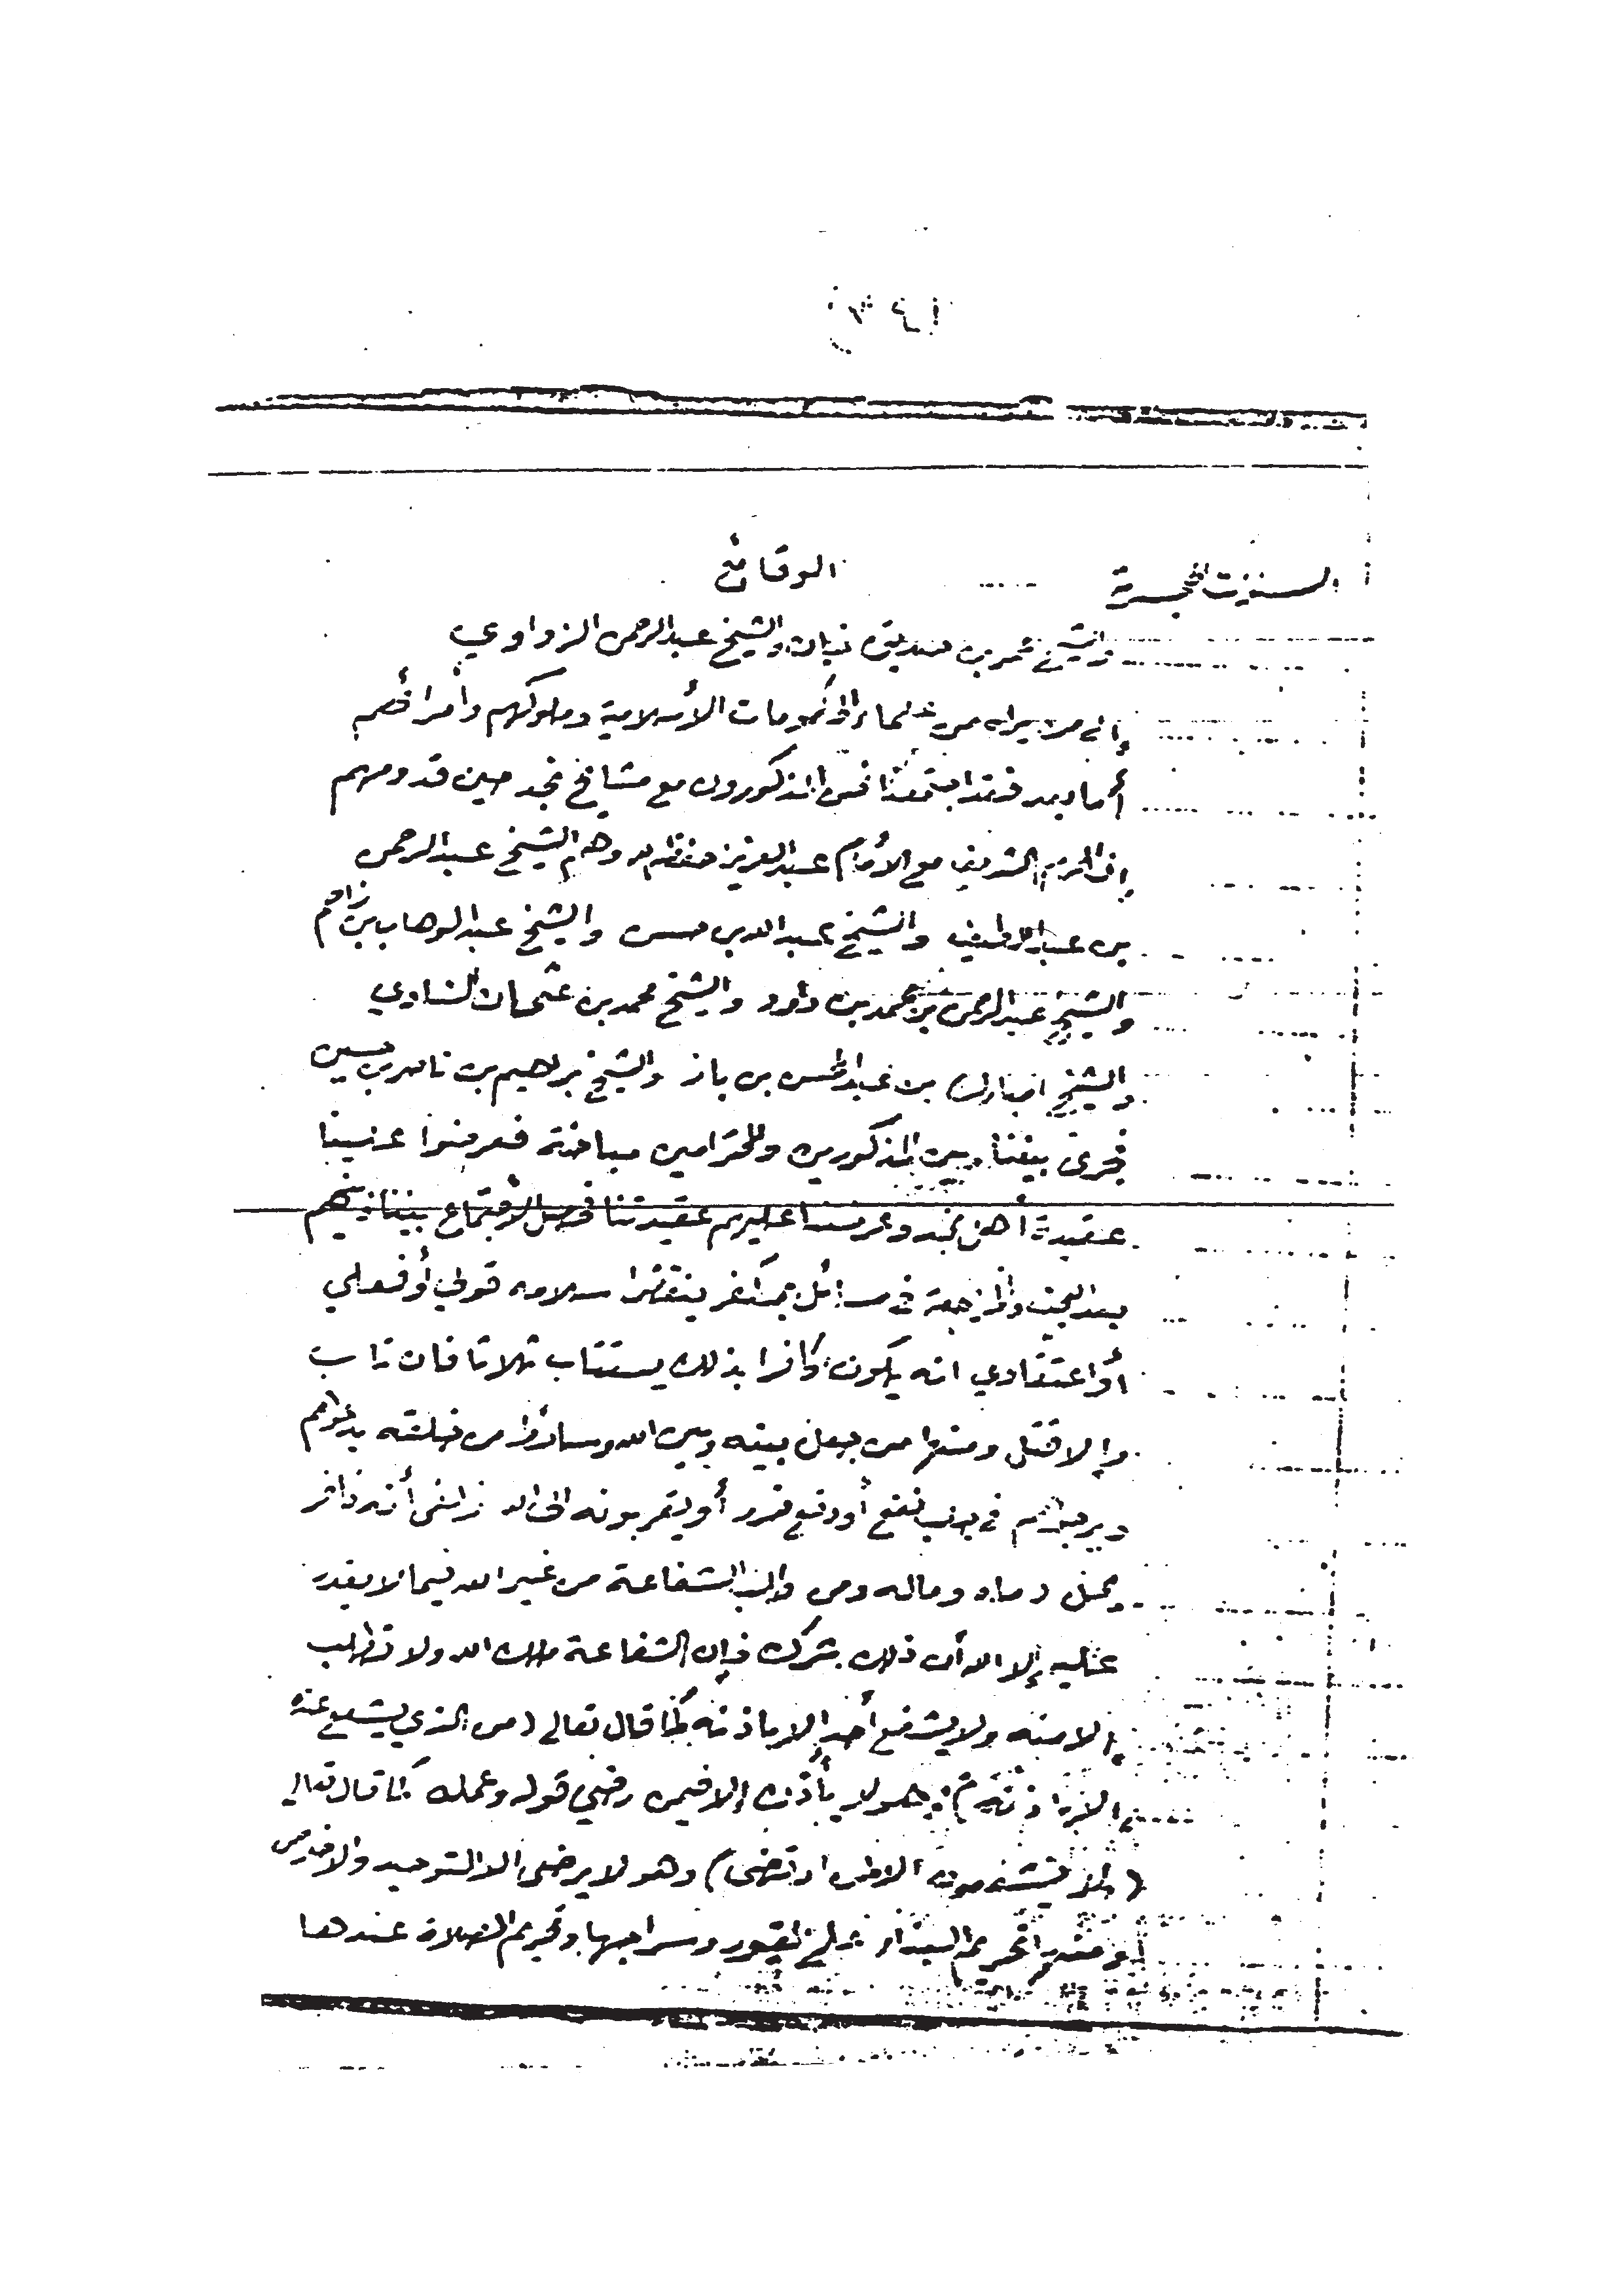 السنين الهجرية
الوقائع
والشيخ عمر بن صديق والشيخ عبدالرحمن الزواوي
إلى من يراه من علماء الحكومات الأسلامية وملوكهم وأمرائهم
أما بعد فقد اجتمعنا نحن المذكورون مع مشايخ نجد حين قدومهم
إلى الحرم الشريف مع الأمام عبدالعزيز حفظه الله وهم الشيخ عبدالرحمن
بن عبداللطيف والشيخ عبدالله بن حسن والشيخ عبدالوهاب بن زاحم
والشيخ عبدالرحمن بن محمد بن داود والشيخ محمد بن عثمان الشاوي
والشيخ امبارك بن عبدالمحسن بن باز والشيخ ابراهيم بن ناصر بن حسين
فجرى بيننا وبين المذكورين والمحترمين مباحثة فعرضوا علينا
عقيدة أهل نجد وعرضنا عليهم عقيدتنا فحصل الأجتماع بيننا وبينهم
بعد البحث والمراجعة في مسائل قولي أو فعلي
أو اعتقادي انه يكون كافرا بذلك يستتاب ثلاثا فان تاب
وإلا قتل ومنها من جعل بينه وبين الله وسائط من خلقه يدعوهم
ويرجوهم في جلب نفع أو دفع ضرر أو يقربونه الى الله زلفى أنه كافر
يحل دمه وماله ومن طلب الشفاعة من غير الله فيما لا يقدر
عليه إلا الله أن ذلك شرك فإن الشفاعة ملك الله ولا تطلب
إلا منه ولا يشفع أحد إلا باذنه كما قال تعالى (من الذي يشفع عنده
إلا باذنه) وهو لا يأذن إلا فيمن رضي قوله وعمله كما قال تعالى
(ولا يشفعون الا لمن ارتضى) وهو لا يرضى الا التوحيد والاخلاص
تحريم البناء على القبور وسراجها وتحريم الصلاة عندها